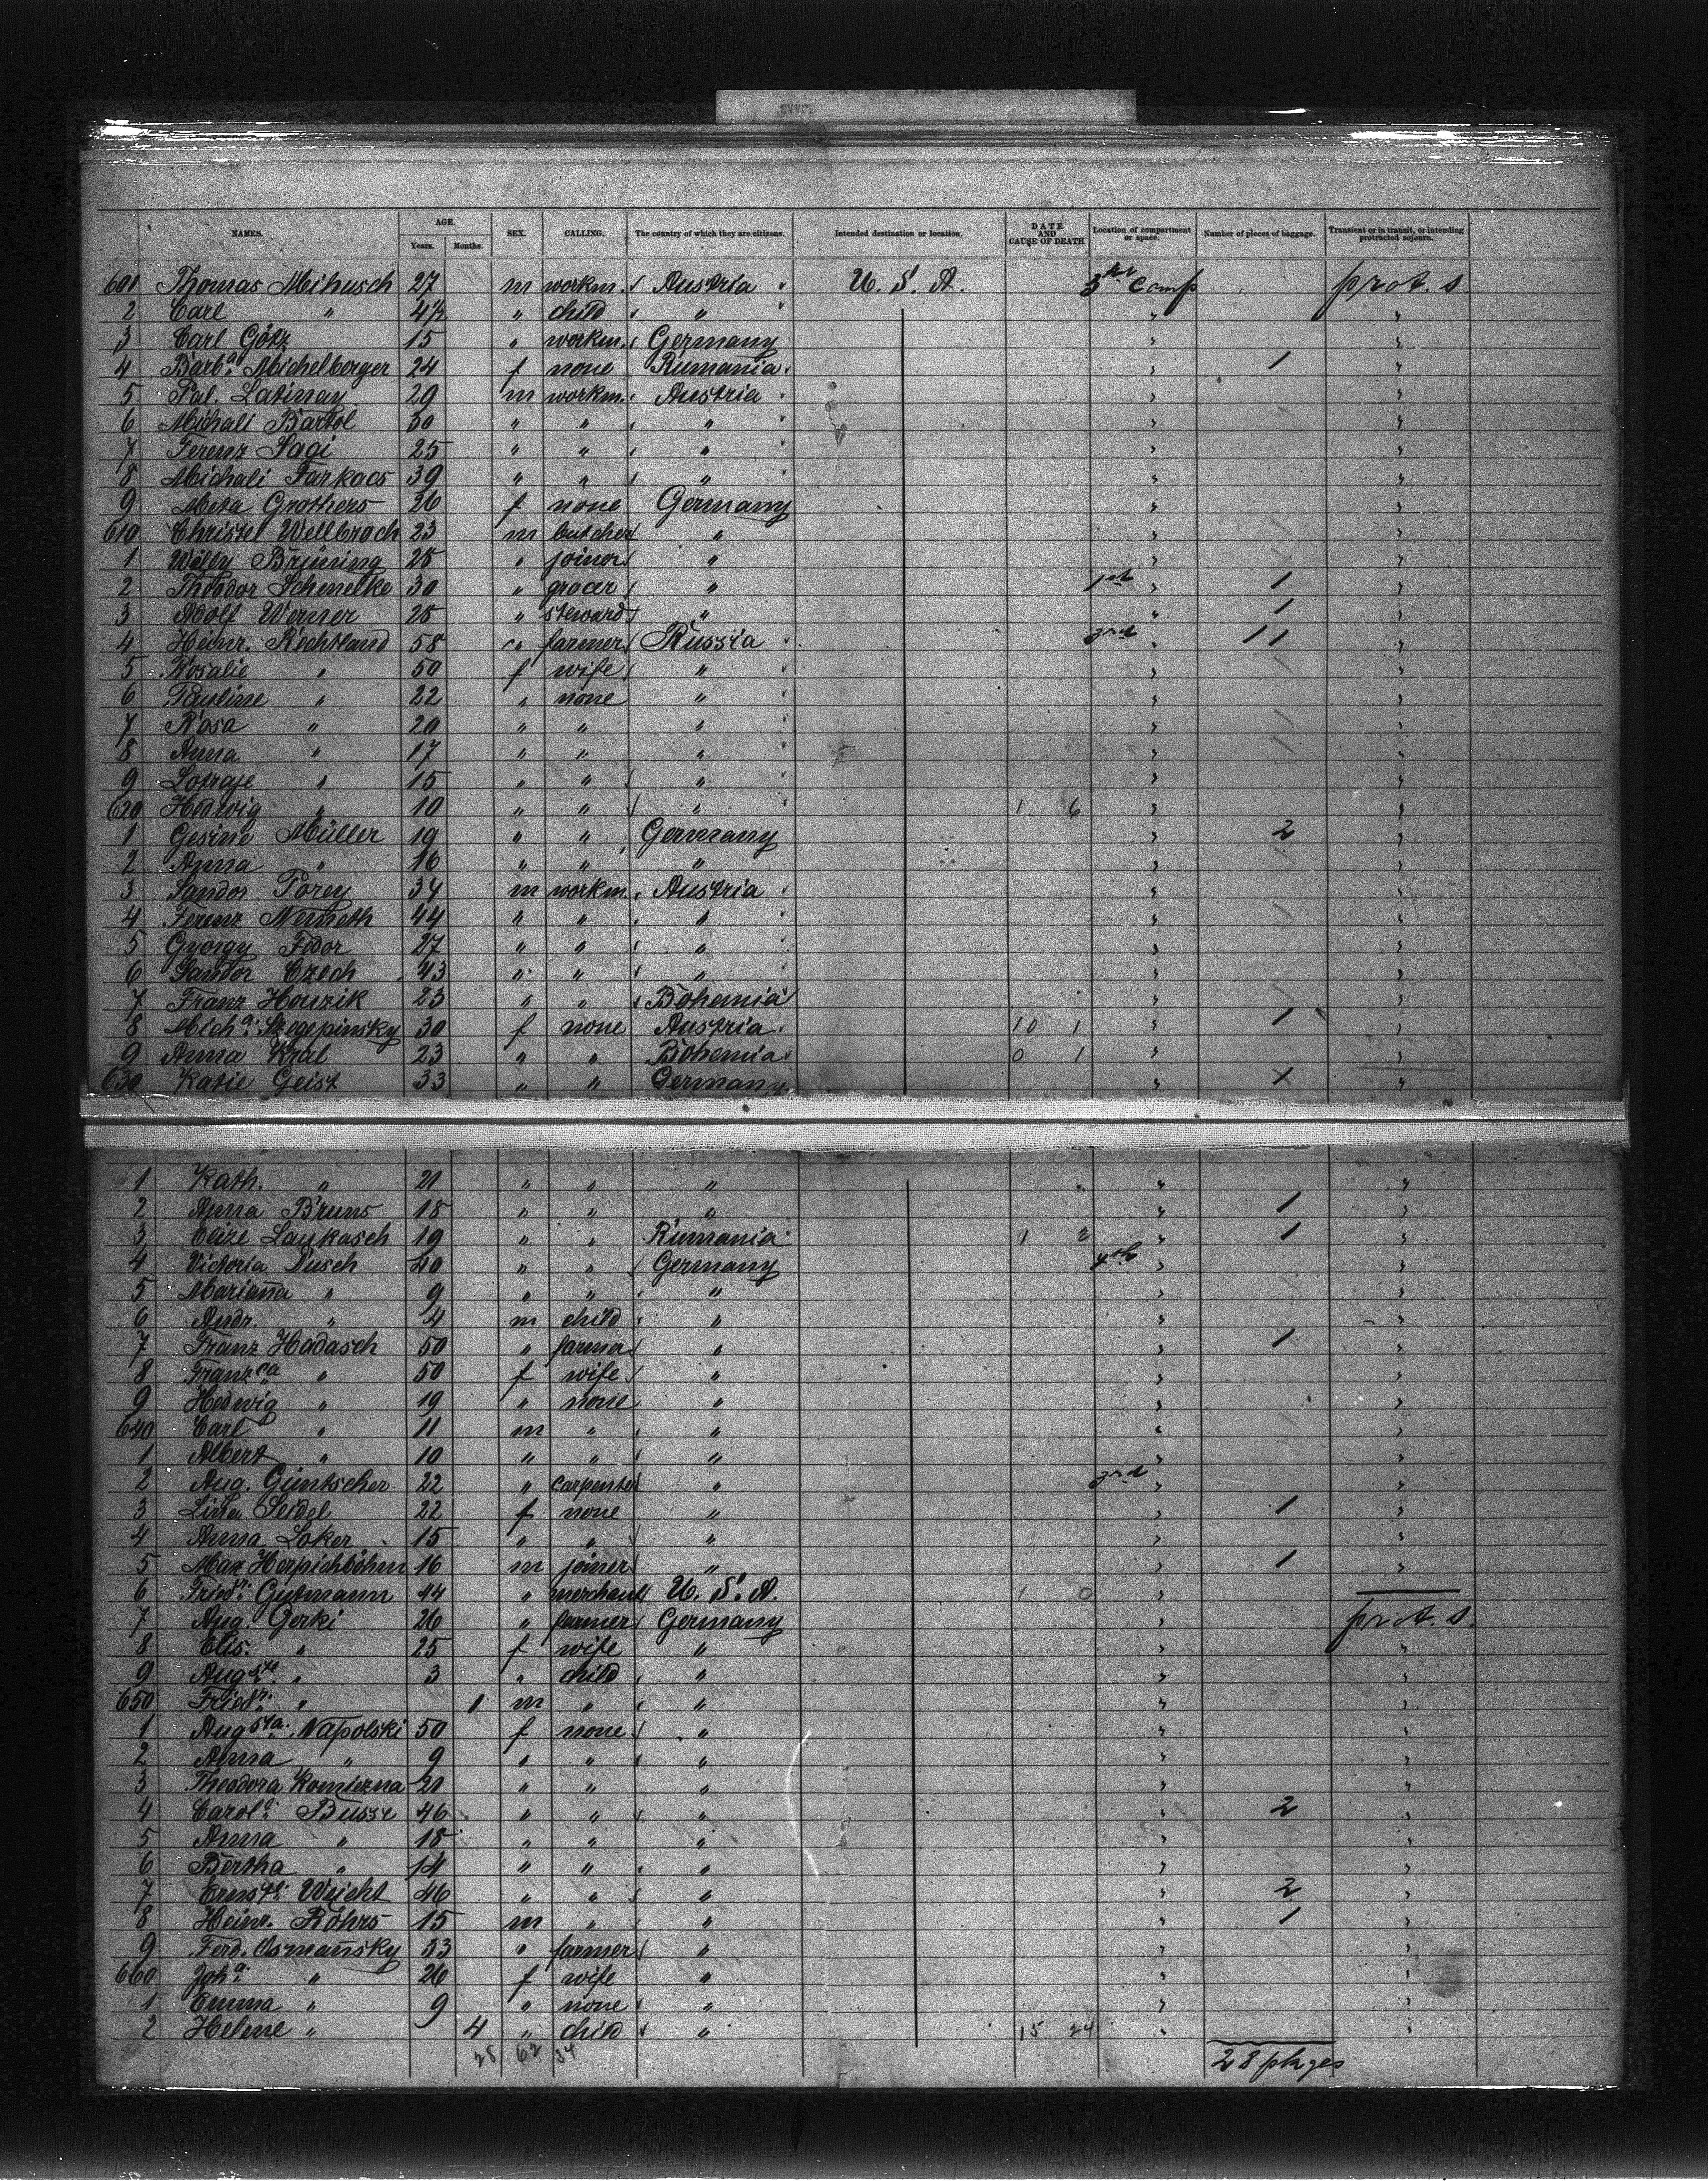 NAMES. AGE. Years. Months. SEX. CALLING. The country of which they are citizens. Intended destination or location. DATE AND CAUSE OF DEATH Location of compartment or space. Number of pieces of baggage. Transient or in transit, or intending protracted sojourn.
601 Thomas Mihusch 27 m workm. Austria U. S. A. 3rd Comp prot. s
2 Carl " 4½ " child " " "
3 Carl Götz 15 " workm. Germany " "
4 Barba. Michelberger 24 f none Rumania " 1 "
5 Pal. Latinay 29 m workm. Austria " "
6 Michali Bartol 30 " " " " "
7 Ferenz Sagi 25 " " " " "
8 Michali Farkacs 39 " " " " "
9 Meta Grothers 26 f none Germany " "
610 Christel Wellbrach 23 m butcher " " "
1 Willy Brüning 25 " joiner " " "
2 Theodor Schmelke 30 " grocer " 1st " 1 "
3 Adolf Werner 25 " steward " " 1 "
4 Heinr. Rechtland 58 " farmer Russia 3rd " 11 "
5 Rosalie " 50 f wife " " "
6 Pauline " 22 " none " " "
7 Rosa " 20 " " " " "
8 Anna " 17 " " " " "
9 " 15 " " " " "
620 Hedwig " 10 " " " 1 6 " "
1 Gesine Müller 19 " " Germany " 2 "
2 Anna " 16 " " " " "
3 Sandor Porey 34 m workm. Austria " "
4 Ferenz Nemeth 44 " " " " "
5 Gyorgy Fodor 27 " " " " "
6 Sandor Czech 43 " " " " "
7 Franz Houzik 23 " " Bohemia " "
8 Micha. Szegepinsky 30 f none Austria 10 1 " 1 "
9 Anna Kral 23 " " Bohemia 0 1 " "
630 Katie Geist 33 " " Germany " 1 "
1 Kath. " 21 " " " " "
2 Anna Bruns 18 " " " " 1 "
3 Elize Laukasch 19 " " Rumania 1 2 " 1 "
4 Victoria Pusch 40 " " Germany 4th " "
5 Marianna " 9 " " " " "
6 Andr. " 4 m child " " "
7 Franz Hadasch 50 " farmer " " 1 "
8 Franzca " 50 f wife " " "
9 Hedwig " 19 " none " " "
640 Carl " 11 m " " " "
1 Albert " 10 " " " " "
2 Aug. Güntscher 22 " carpenter " 3rd " "
3 Lina Seidel 22 f none " " 1 "
4 Anna Loker 15 " " " " "
5 Max Herpichböhm 16 m joiner " " 1 "
6 Friedr. Gutmann 44 " merchant U. S. A. 1 0 "
7 Aug. Gerki 26 " farmer Germany " prot. s.
8 Elis. " 25 f wife " " "
9 Auguste. " 3 " child " " "
650 Friedr. " 1 m " " " "
1 Augsta. Napolski 50 f none " " "
2 Anna " 9 " " " " "
3 Theodora Komiezna 21 " " " " "
4 Carola. Busse 46 " " " " 2 "
5 Anna " 18 " " " " "
6 Bertha " 14 " " " " "
7 Weicht 46 " " " " 2 "
8 Heinr. Röhrs 15 m " " " 1 "
9 Ferd. Osmansky 33 " farmer " " "
660 Joha. " 26 f wife " " "
1 Emma " 9 " none " " "
2 Helene " 4 " child " 15 24 " "
28 62 34 28 pkges